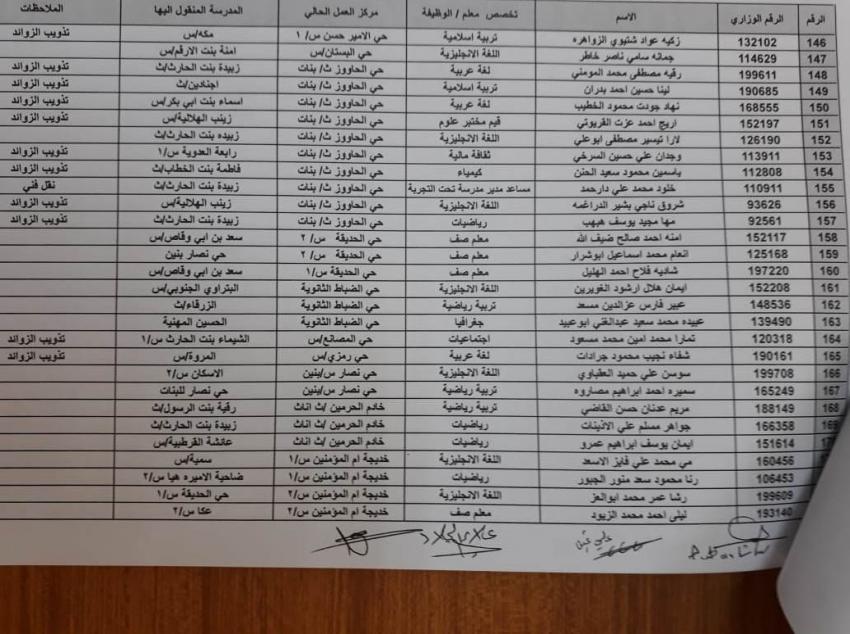 الرقم الرقم الوزاري الاسم تخصص معلم / الوظيفة مركز العمل الحالي المدرسة المنقول اليها الملاحظات
146 132102 زكيه عواد شتيوي الزواهره تربية اسلامية حي الامير حسن س/ ١ مكه/س تذويب الزوائد
147 114629 جمانه سامي ناصر خاطر اللغة الانجليزية حي البستان/س امنة بنت الارقم/س
148 199611 رقيه مصطفى محمد المومني لغة عربية حي الحاووز ث/ بنات زبيدة بنت الحارث/ث تذويب الزوائد
149 190685 لينا حسين احمد بدران تربية اسلامية حي الحاووز ث/ بنات اجنادين/ث تذويب الزوائد
150 168555 نهاد جودت محمود الخطيب لغة عربية حي الحاووز ث/ بنات اسماء بنت ابي بكر/س تذويب الزوائد
151 152197 اريج احمد عزت القريوتي قيم مختبر علوم حي الحاووز ث/ بنات زينب الهلالية/س تذويب الزوائد
152 126190 لارا تيسير مصطفى ابوعلي اللغة الانجليزية حي الحاووز ث/ بنات زبيده بنت الحارث/ث
153 113911 وجدان علي حسين السرخي ثقافة مالية حي الحاووز ث/ بنات رابعة العدوية س/١ تذويب الزوائد
154 112808 ياسمين محمود سعيد الحنن كيمياء حي الحاووز ث/ بنات فاطمة بنت الخطاب/ث تذويب الزوائد
155 110911 خلود محمد علي دارحمد مساعد مدير مدرسة تحت التجربة حي الحاووز ث/ بنات زبيدة بنت الحارث/ث نقل فني
156 93626 شروق ناجي بشير الدراغمه اللغة الانجليزية حي الحاووز ث/ بنات زينب الهلالية/س تذويب الزوائد
157 92561 مها مجيد يوسف هبهب رياضيات حي الحاووز ث/ بنات زبيدة بنت الحارث/ث تذويب الزوائد
158 152117 امنه احمد صالح ضيف الله معلم صف حي الحديقة س/ ٢ سعد بن ابي وقاص/س
159 125168 انعام محمد اسماعيل ابوشرار معلم صف حي الحديقة س/ ٢ حي نصار بنين
160 197220 شاديه فلاح احمد الهليل معلم صف حي الحديقة س/١ سعد بن ابي وقاص/س
161 152208 ايمان هلال ارشود الغويرين اللغة الانجليزية حي الضباط الثانوية البتراوي الجنوبي/س
162 148536 عبير فارس عزالدين مسعد تربية رياضية حي الضباط الثانوية الزرقاء/ث
163 139490 عبيده محمد سعيد عبدالغني ابوعبيد جغرافيا حي الضباط الثانوية الحسين المهنية
164 120318 تمارا محمد امين محمد مسعود اجتماعيات حي المصانع/س الشيماء بنت الحارث س/١ تذويب الزوائد
165 190161 شفاء نجيب محمود جرادات لغة عربية حي رمزي/س المروة/س تذويب الزوائد
166 199708 سوسن علي حميد العقباوي اللغة الانجليزية حي نصار س/بنين الاسكان س/٢
167 165249 سميره احمد ابراهيم مصاروه تربية رياضية حي نصار س/بنين حي نصار للبنات
168 188149 مريم عدنان حسن القاضي تربية رياضية خادم الحرمين /ث اناث رقية بنت الرسول/ث
169 166358 جواهر مسلم علي الاذينات رياضيات خادم الحرمين /ث اناث زبيدة بنت الحارث/ث
151614 ايمان يوسف ابراهيم عمرو رياضيات خادم الحرمين /ث اناث عائشة القرطبية/س
160456 مي محمد علي فايز الاسعد اللغة الانجليزية خديجة ام المؤمنين س/١ سمية/س
106453 رنا محمود سعد منور الجبور رياضيات خديجة ام المؤمنين س/١ ضاحية الاميره هيا س/٢
199609 رشا عمر محمد ابوالعز اللغة الانجليزية خديجة ام المؤمنين س/٢ حي الحديقة س/١
193140 ليلى احمد محمد الزيود معلم صف خديجة ام المؤمنين س/٢ عكا س/٢